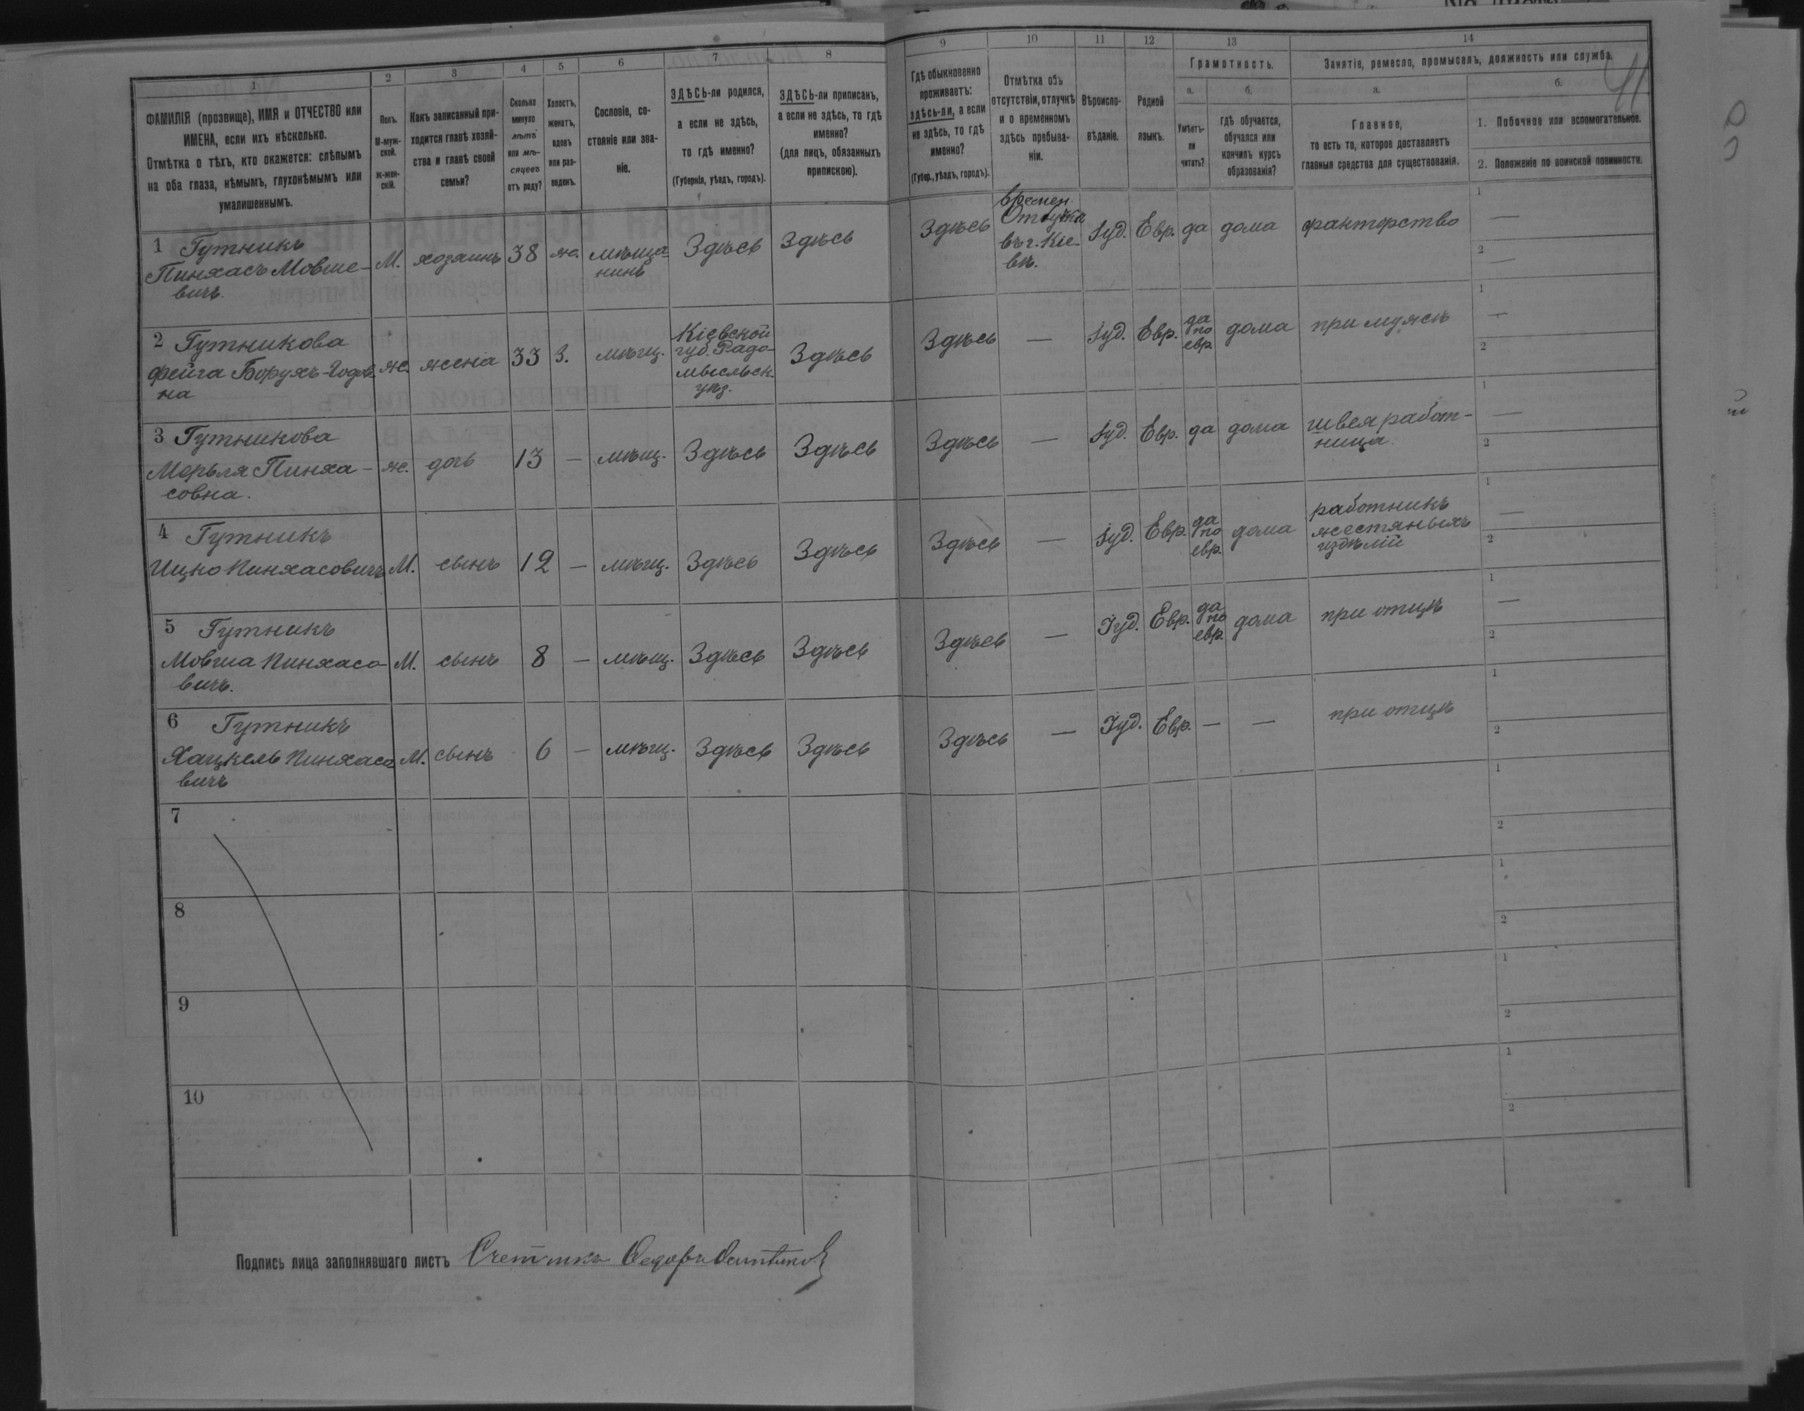 1
2
3
4
5
6
7
8
9
10
11
12
13
14
ФАМИЛІЯ (прозвище), ИМЯ и ОТЧЕСТВО или
ИМЕНА, если ихъ нѣсколько.
Отмѣтка о тѣхъ, кто окажется: слѣпымъ
на оба глаза, нѣмымъ, глухонѣмымъ или
умалишеннымъ.
Полъ.
М-муж-
ской.
Ж-жен-
скій.
Какъ записанный при-
ходится главѣ хозяй-
ства и главѣ своей
семьи?
Сколько
минуло
лѣтъ
или мѣ-
сяцевъ
отъ роду?
Холостъ,
женатъ,
вдовъ
или раз-
веденъ.
Сословіе, со-
стояніе или зва-
ніе.
ЗДѢСЬ-ли родился,
а если не здѣсь,
то гдѣ именно?
(Губернія, уѣздъ, городъ).
ЗДѢСЬ-ли приписанъ,
а если не здѣсь, то гдѣ
именно?
(для лицъ, обязанныхъ
припискою).
Гдѣ обыкновенно
проживаетъ:
здѣсь-ли, а если
не здѣсь, то гдѣ
именно?
(Губер., уѣздъ, городъ).
Отмѣтка объ
отсутствіи, отлучкѣ
и о временномъ
здѣсь пребыва-
ніи.
Вѣроиспо-
вѣданіе.
Родной
языкъ.
Грамотность.
а.
Умѣетъ-
ли
читать?
б.
гдѣ обучается,
обучался или
кончилъ курсъ
образованія?
Занятіе, ремесло, промыселъ, должность или служба.
а.
Главное,
то есть то, которое доставляетъ
главныя средства для существованія.
б.
1. Побочное или вспомогательное.
2. Положеніе по воинской повинности.
41
1 Гутникъ
Пинхасъ Мовше-
вичъ.
М. хозяинъ 38 ж. мѣща-
нинъ
Здѣсь Здѣсь Здѣсь
времен.
Отлучка
въ г. Кіе-
вѣ.
Іуд. Евр. да дома факторство
1 —
2 —
2 Гутникова
Фейга Борухъ-
на
ж. жена 33 З. мѣщ.
Кіевской
губ. Радо-
мысльск.
уѣз.
Здѣсь Здѣсь — Іуд. Евр.
да
по
евр.
дома при мужѣ
1 —
2
3 Гутникова
Мерьля Пинха-
совна.
ж. дочь 13 — мѣщ. Здѣсь Здѣсь Здѣсь — Іуд. Евр. да дома
швея работ-
ница.
1 —
2
4 Гутникъ
Ицко Пинхасовичъ
М. сынъ 12 — мѣщ. Здѣсь Здѣсь Здѣсь — Іуд. Евр.
да
по
евр.
дома
работникъ
жестяныхъ
издѣлій
1 —
2 —
5 Гутникъ
Мовша Пинхасо-
вичъ.
М. сынъ 8 — мѣщ. Здѣсь Здѣсь Здѣсь — Іуд. Евр.
да
по
евр.
дома при отцѣ
1 —
2
6 Гутникъ
Хацкель Пинхасо-
вичъ
М. сынъ 6 — мѣщ. Здѣсь Здѣсь Здѣсь — Іуд. Евр. — — при отцѣ
1
2
7
1
2
8
1
2
9
1
2
10
1
2
Подпись лица заполнявшаго листъ Счетчикъ Федоръ